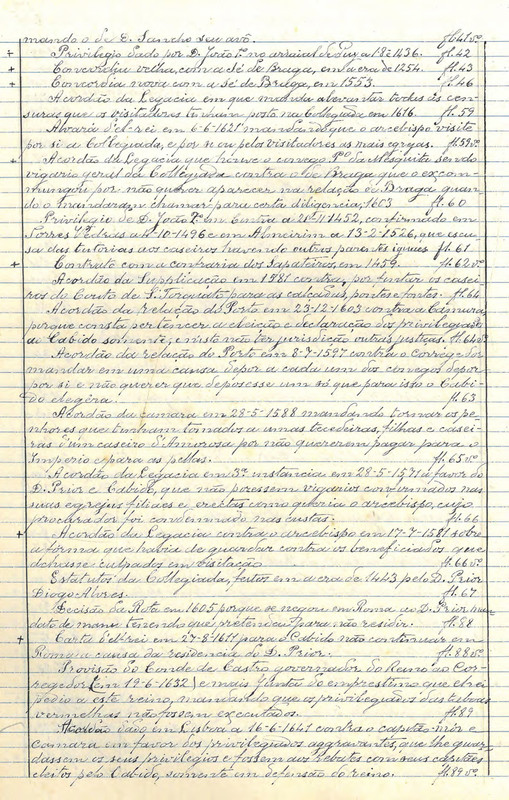 mando o de D. Sancho seu avô. fl. 41 vº
+ Privilegio dado por D. João 1º no arraial de Tuy a 18= 1436. fl. 42
+ Concordia velha, com a Sé de Braga, em a era de 1254. fl. 43
+ Concordia nova com a Sé de Braga, em 1553. fl. 46
Acordão da Legacia em que manda alevantar todas as cen-
suras que os visitadores tinham posto na Collegiada em 1616. fl. 59
Alvará d'el-rei em 6-6-1621 mandando que o arcebispo visite
por si a Collegiada, e por si ou pelos visitadores as mais egrejas. fl. 59 vº
+ Acordão da Legacia que houve o conego Pº da Mesquita sendo
vigario geral da Collegiada contra o de Braga que o excom-
mungou por não querer aparecer na relação de Braga quan-
do o mandaram chamar para certa diligencia, 1603 fl. 60
Privilegio de D. João 2º em Cintra a 1452, confirmado em
Torres Vedras a 10-1496 e em Almeirim a 13-2-1526, que escu-
sa das tutorias aos caseiros havendo outros parentes iguaes. fl. 61
+ Contrato com a confraria dos Sapateiros, em 1459. fl. 62 vº
Acordão da Supplicação em 1781 contra, por fintar os casei-
ros do Couto de S. Torquato para as calçadas, pontes e fontes. fl. 64
Acordão da relação do Porto em 23-12-1603 contra a Camara,
porque consta pertencer a eleição e declaração dos privilegiados
ao Cabido somente, e nisto não ter jurisdicção outras justiças. fl. 64 vº
Acordão da relação do Porto em 8-7-1597 contra o Corregedor
mandar em uma causa depor a cada um dos conegos depor
por si e não querer que depozesse um só que para isso o Cabi-
do elegêra. fl. 63
Acordão da camara em 28-5-1588 mandando tornar os pe-
nhores que tinham tomados a umas tecedeiras, filhas e casei-
ras d'um caseiro d'Amorosa por não quererem pagar para o
Imperio e para as pellas. fl. 65 vº
Acordão da Legacia em 3ª instancia em 28-5-1571 a favor do
D. Prior e Cabido, que não pozessem vigarios confirmados nas
suas egrejas filiaes e erectas como queria o arcebispo, cujo
procurador foi condemnado nas custas. fl. 66
+ Acordão da Legacia contra o arcebispo em 17-7-1581 sobre
a fórma que havia de guardar contra os beneficiados que
achasse culpados em visitação. fl. 66 vº
Estatutos da Collegiada, feitos em a era de 1443 pelo D. Prior
Diogo Alvares. fl. 67
Decisão da Rota em 1605 porque se negou em Roma ao D. Prior man-
dato de manu tenendo que pretendia para não residir. fl. 88
+ Carta d'el-rei em 27-8-1611 para o Cabido não continuar em
Roma a causa da residencia do D. Prior. fl. 88 vº
Provisão do Conde de Castro governador do Reino ao Cor-
regedor (em 19-6-1632) e mais Junta do emprestimo que el-rei
pedio a este reino, mandando que os privilegiados das taboas
vermelhas não fossem executados. fl. 89
Acordão dado em Lisboa a 16-6-1641 contra o capitão-mór e
camara em favor dos privilegiados aggravantes, que lhe guar-
dassem os seus privilegios e fossem aos rebates com seus capitães
eleitos pelo Cabido, somente em defensão do reino. fl. 89 vº